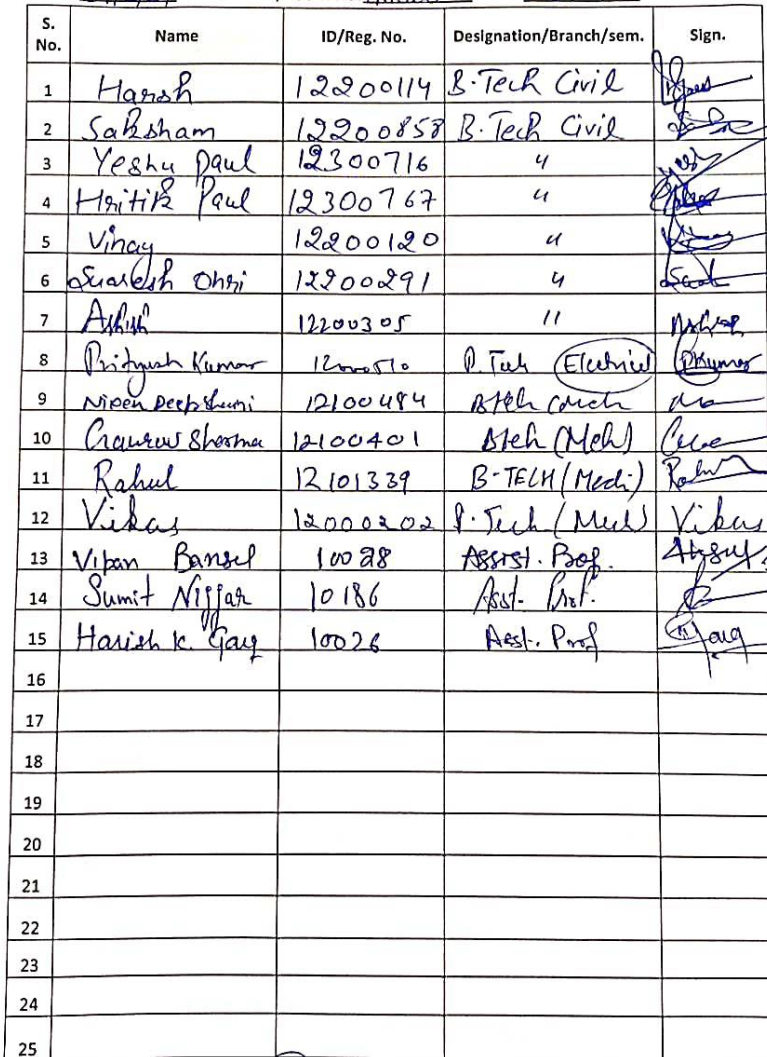 S. No. Name ID/Reg. No. Designation/Branch/sem. Sign.
1 Harsh 12200114 B.Tech Civil
2 Saksham 12200858 B.Tech Civil
3 Yeshu Paul 12300716 "
4 Hritik Paul 12300767 "
5 Vinay 12200120 "
6 Ohri 12200291 "
7 Ashish 12200305 "
8 Prityush Kumar B.Tech (Electrical) PKumar
9 Nipen Deep 12100484 Btech
10 Gaurav Sharma 12100401 Btech (Meh)
11 Rahul 12101339 B-TECH (Mech)
12 Vikas 12000202 B.Tech (Mech) Vikas
13 Vipan Bansel 10028 Assist. Prof.
14 Sumit Nijjar 10186 Asst. Prof.
15 Harish K. Garg 10026 Asst. Prof Garg
16
17
18
19
20
21
22
23
24
25